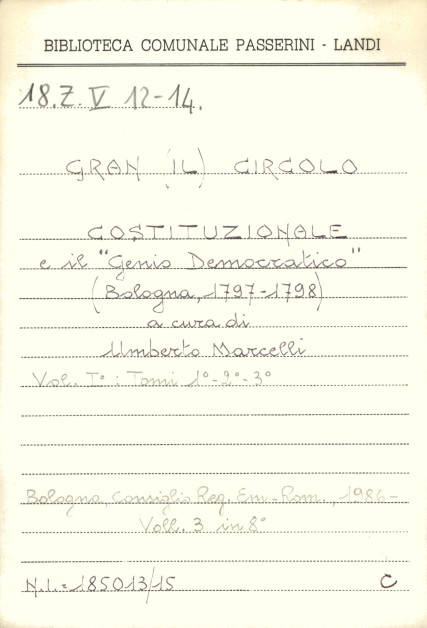 BIBLIOTECA COMUNALE PASSERINI - LANDI
18.Z. V 12-14.
GRAN (IL) CIRCOLO
COSTITUZIONALE
e il "Genio Democratico"
(Bologna, 1797-1798)
a cura di
Umberto Marcelli
Vol. I°: Tomi 1°-2°-3°
Bologna, Consiglio Reg. Em-Rom., 1986-
Voll. 3 in 8°
N.I. = 185013/15 C